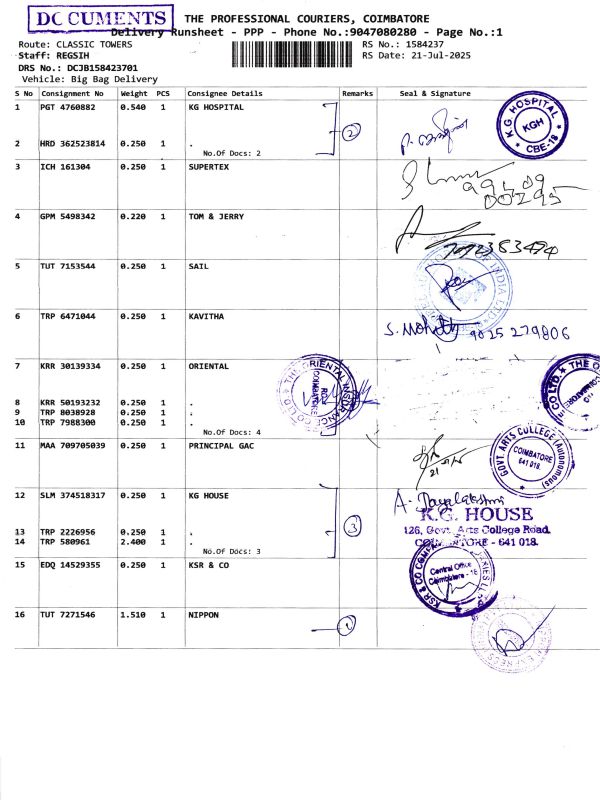 DOCUMENTS
THE PROFESSIONAL COURIERS, COIMBATORE
Delivery Runsheet - PPP - Phone No.:9047080280 - Page No.:1
Route: CLASSIC TOWERS RS No.: 1584237
Staff: REGSIH RS Date: 21-Jul-2025
DRS No.: DCJB158423701
Vehicle: Big Bag Delivery
S No Consignment No Weight PCS Consignee Details Remarks Seal & Signature
1 PGT 4760882 0.540 1 KG HOSPITAL
K.G. HOSPITAL KGH CBE-18
2 HRD 362523814 0.250 1 . 2
No.Of Docs: 2
3 ICH 161304 0.250 1 SUPERTEX
4 GPM 5498342 0.220 1 TOM & JERRY
5 TUT 7153544 0.250 1 SAIL
6 TRP 6471044 0.250 1 KAVITHA
9825 279806
7 KRR 30139334 0.250 1 ORIENTAL
THE ORIENTAL INSURANCE CO LTD
8 KRR 50193232 0.250 1 .
9 TRP 8038928 0.250 1 .
10 TRP 7988300 0.250 1 .
No.Of Docs: 4
11 MAA 709705039 0.250 1 PRINCIPAL GAC
GOVT. ARTS COLLEGE (Autonomous) COIMBATORE 641 018.
12 SLM 374518317 0.250 1 KG HOUSE
K.G. HOUSE
13 TRP 2226956 0.250 1 . 3
126, Govt. Arts College Road,
14 TRP 580961 2.400 1 .
COIMBATORE - 641 018.
No.Of Docs: 3
15 EDQ 14529355 0.250 1 KSR & CO
Central Office
Coimbatore - 18
16 TUT 7271546 1.510 1 NIPPON
1